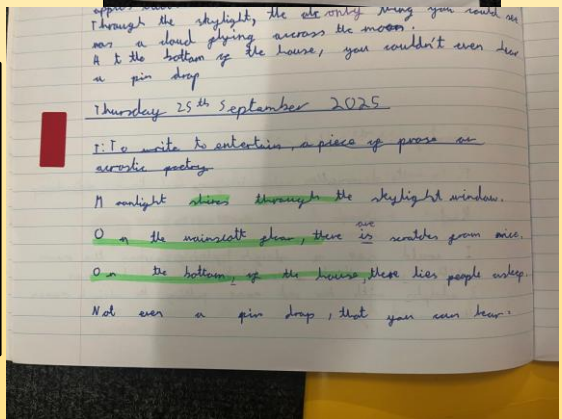 Through the skylight, the only thing you could see
was a cloud flying accross the moon.
At the bottom of the house, you couldn't even hear
a pin drop
Thursday 25th September 2025
T: To write to entertain, a piece of prose or
acrostic poetry
Moonlight shines through the skylight window.
are
On the wainscott floor, there is scratches from mice.
On the bottom, of the house, there lies people asleep.
Not even a pin drop, that you can hear.